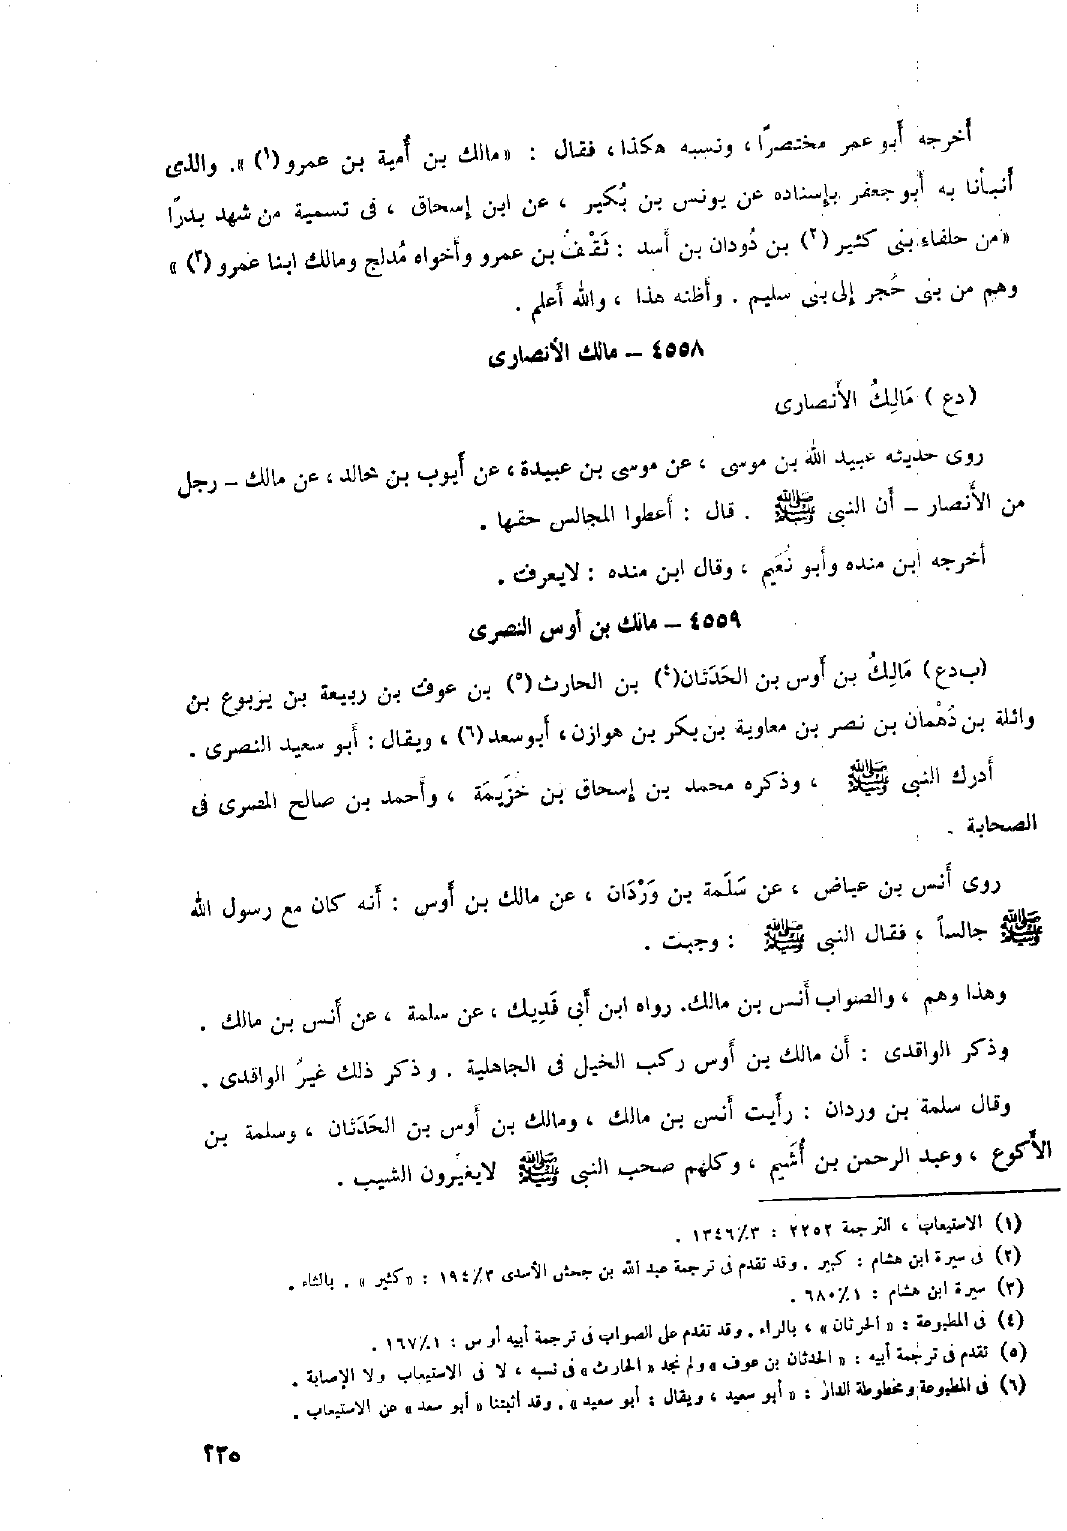 أخرجه أبو عمر مختصرًا ، ونسبه هكذا ، فقال : «مالك بن أمية بن عمرو (١) ». والذى
أنبأنا به أبو جعفر بإسناده عن يونس بن بُكير ، عن ابن إسحاق ، فى تسمية من شهد بدرًا
«من حلفاء بنى كثير (٢) بن دُودان بن أسد : ثَقْفُ بن عمرو وأخواه مُدلج ومالك ابنا عمرو (٣) »
وهم من بنى حُجر إلى بنى سليم . وأظنه هذا ، والله أعلم .
٤٥٥٨ – مالك الأنصارى
( دع ) مَالِكُ الأنصارى
روى حديثه عبيد الله بن موسى ، عن موسى بن عبيدة ، عن أيوب بن خالد ، عن مالك – رجل
من الأنصار – أن النبى ﷺ . قال : أعطوا المجالس حقها .
أخرجه ابن منده وأبو نُعَيم ، وقال ابن منده : لايعرف .
٤٥٥٩ – مالك بن أوس النصرى
(ب دع) مَالِكُ بن أوس بن الحَدَثان(٤) بن الحارث(٥) بن عوف بن ربيعة بن يربوع بن
واثلة بن دُهْمان بن نصر بن معاوية بن بكر بن هوازن ، أبو سعد (٦) ، ويقال : أبو سعيد النصرى .
أدرك النبى ﷺ ، وذكره محمد بن إسحاق بن خَزَيمَة ، وأحمد بن صالح المصرى فى
الصحابة .
روى أنس بن عياض ، عن سَلَمة بن وَرْدَان ، عن مالك بن أوس : أنه كان مع رسول الله
ﷺ جالساً ، فقال النبى ﷺ : وجبت .
وهذا وهم ، والصواب أنس بن مالك. رواه ابن أبى فَدِيك ، عن سلمة ، عن أنس بن مالك .
وذكر الواقدى : أن مالك بن أوس ركب الخيل فى الجاهلية . وذكر ذلك غيرُ الواقدى .
وقال سلمة بن وردان : رأيت أنس بن مالك ، ومالك بن أوس بن الحَدَثان ، وسلمة بن
الأكوع ، وعبد الرحمن بن أُشَيم ، وكلهم صحب النبى ﷺ لايغيرون الشيب .
(١) الاستيعاب ، الترجمة ٢٢٥٢ : ٣/ ١٣٤٦ .
(٢) فى سيرة ابن هشام : كبير . وقد تقدم فى ترجمة عبد الله بن جحش الأسدى ٣/ ١٩٤ : «كثير » . بالثاء .
(٣) سيرة ابن هشام : ١/ ٦٨٠ .
(٤) فى المطبوعة : « الحرثان » ، بالراء . وقد تقدم على الصواب فى ترجمة أبيه أوس : ١/ ١٦٧ .
(٥) تقدم فى ترجمة أبيه : « الحدثان بن عوف » ولم نجد « الحارث » فى نسبه ، لا فى الاستيعاب ولا الإصابة .
(٦) فى المطبوعة ومخطوطة الدار : « أبو سعيد ، ويقال : أبو سعيد » . وقد أثبتنا « أبو سعد » عن الاستيعاب .
٢٣٥